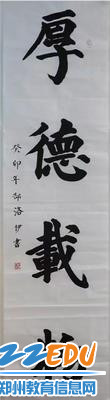 厚德載
癸卯年郜洛伊書
22EDU
郑州教育信息网